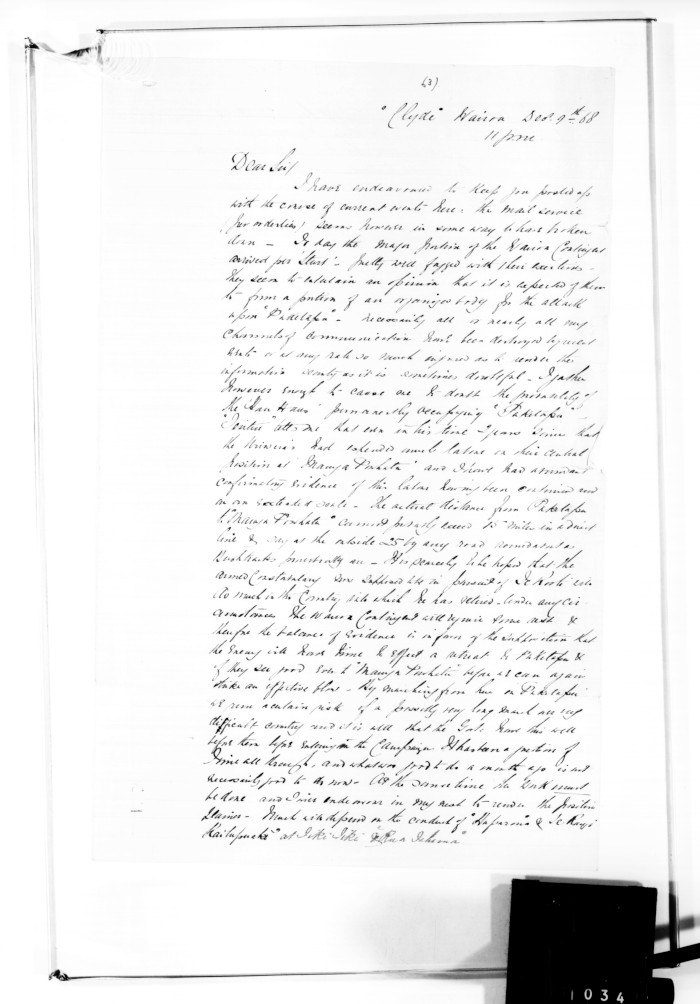 (3)
"Clyde" Wairoa Dec 9th 68
11 pm
Dear Sir
I have endeavoured to keep you posted up
with the course of current events here. the mail service
(per orderlies) seems however in some way to have broken
down — To day the major portion of the Wairoa Contingent
arrived per 'Sturt' - pretty well fagged with their exertions -
They seem to entertain an opinion that it is expected of them
to form a portion of an organized body for the attack
upon "Puketapu" - necessarily all or nearly all my
channels of communication have been destroyed by recent
events or at any rate so much injured as to render the
information scanty as it is sometimes doubtful - I gather
however enough to cause me to doubt the probability of
the "Hau Haus" permanently occupying "Puketapu" -
tells me that even in his time - years since that
the had extended much labour on their central
position at "Maunga Powhatu" and I have had abundant
confirmatory evidence of this labor having been continued and
on an extended scale - The actual distance from Puketapu
to "Maunga Powhatu" cannot greatly exceed 15 miles in a direct
line & say at the outside 25 by any road
Bush tracks proverbially are - It is scarcely to be hoped that the
armed Constabulary in pursuit of Te Kooti
so much in the Country into which he has retired - Under any cir
cumstances the Wairoa Contingent will require some rest &
therefore the balance of evidence is in favor of the supposition that
the Enemy will have time to effect a retreat to Puketapu &
if they see good even to "Maunga Powhatu" before we can again
strike an effective blow - By marching from here on Puketapu
we run a certain risk of a possibly very long march over very
difficult country and it is well that the Govt. have this well
before them before entering on the Campaign It has been a question of
time all through, and what was good to do a month ago is not
necessarily good to do now - At the same time the work must
be done and I will endeavour in my next to render the position
plainer - Much will depend on the conduct of "Hapurona" &
at Tiki Tiki